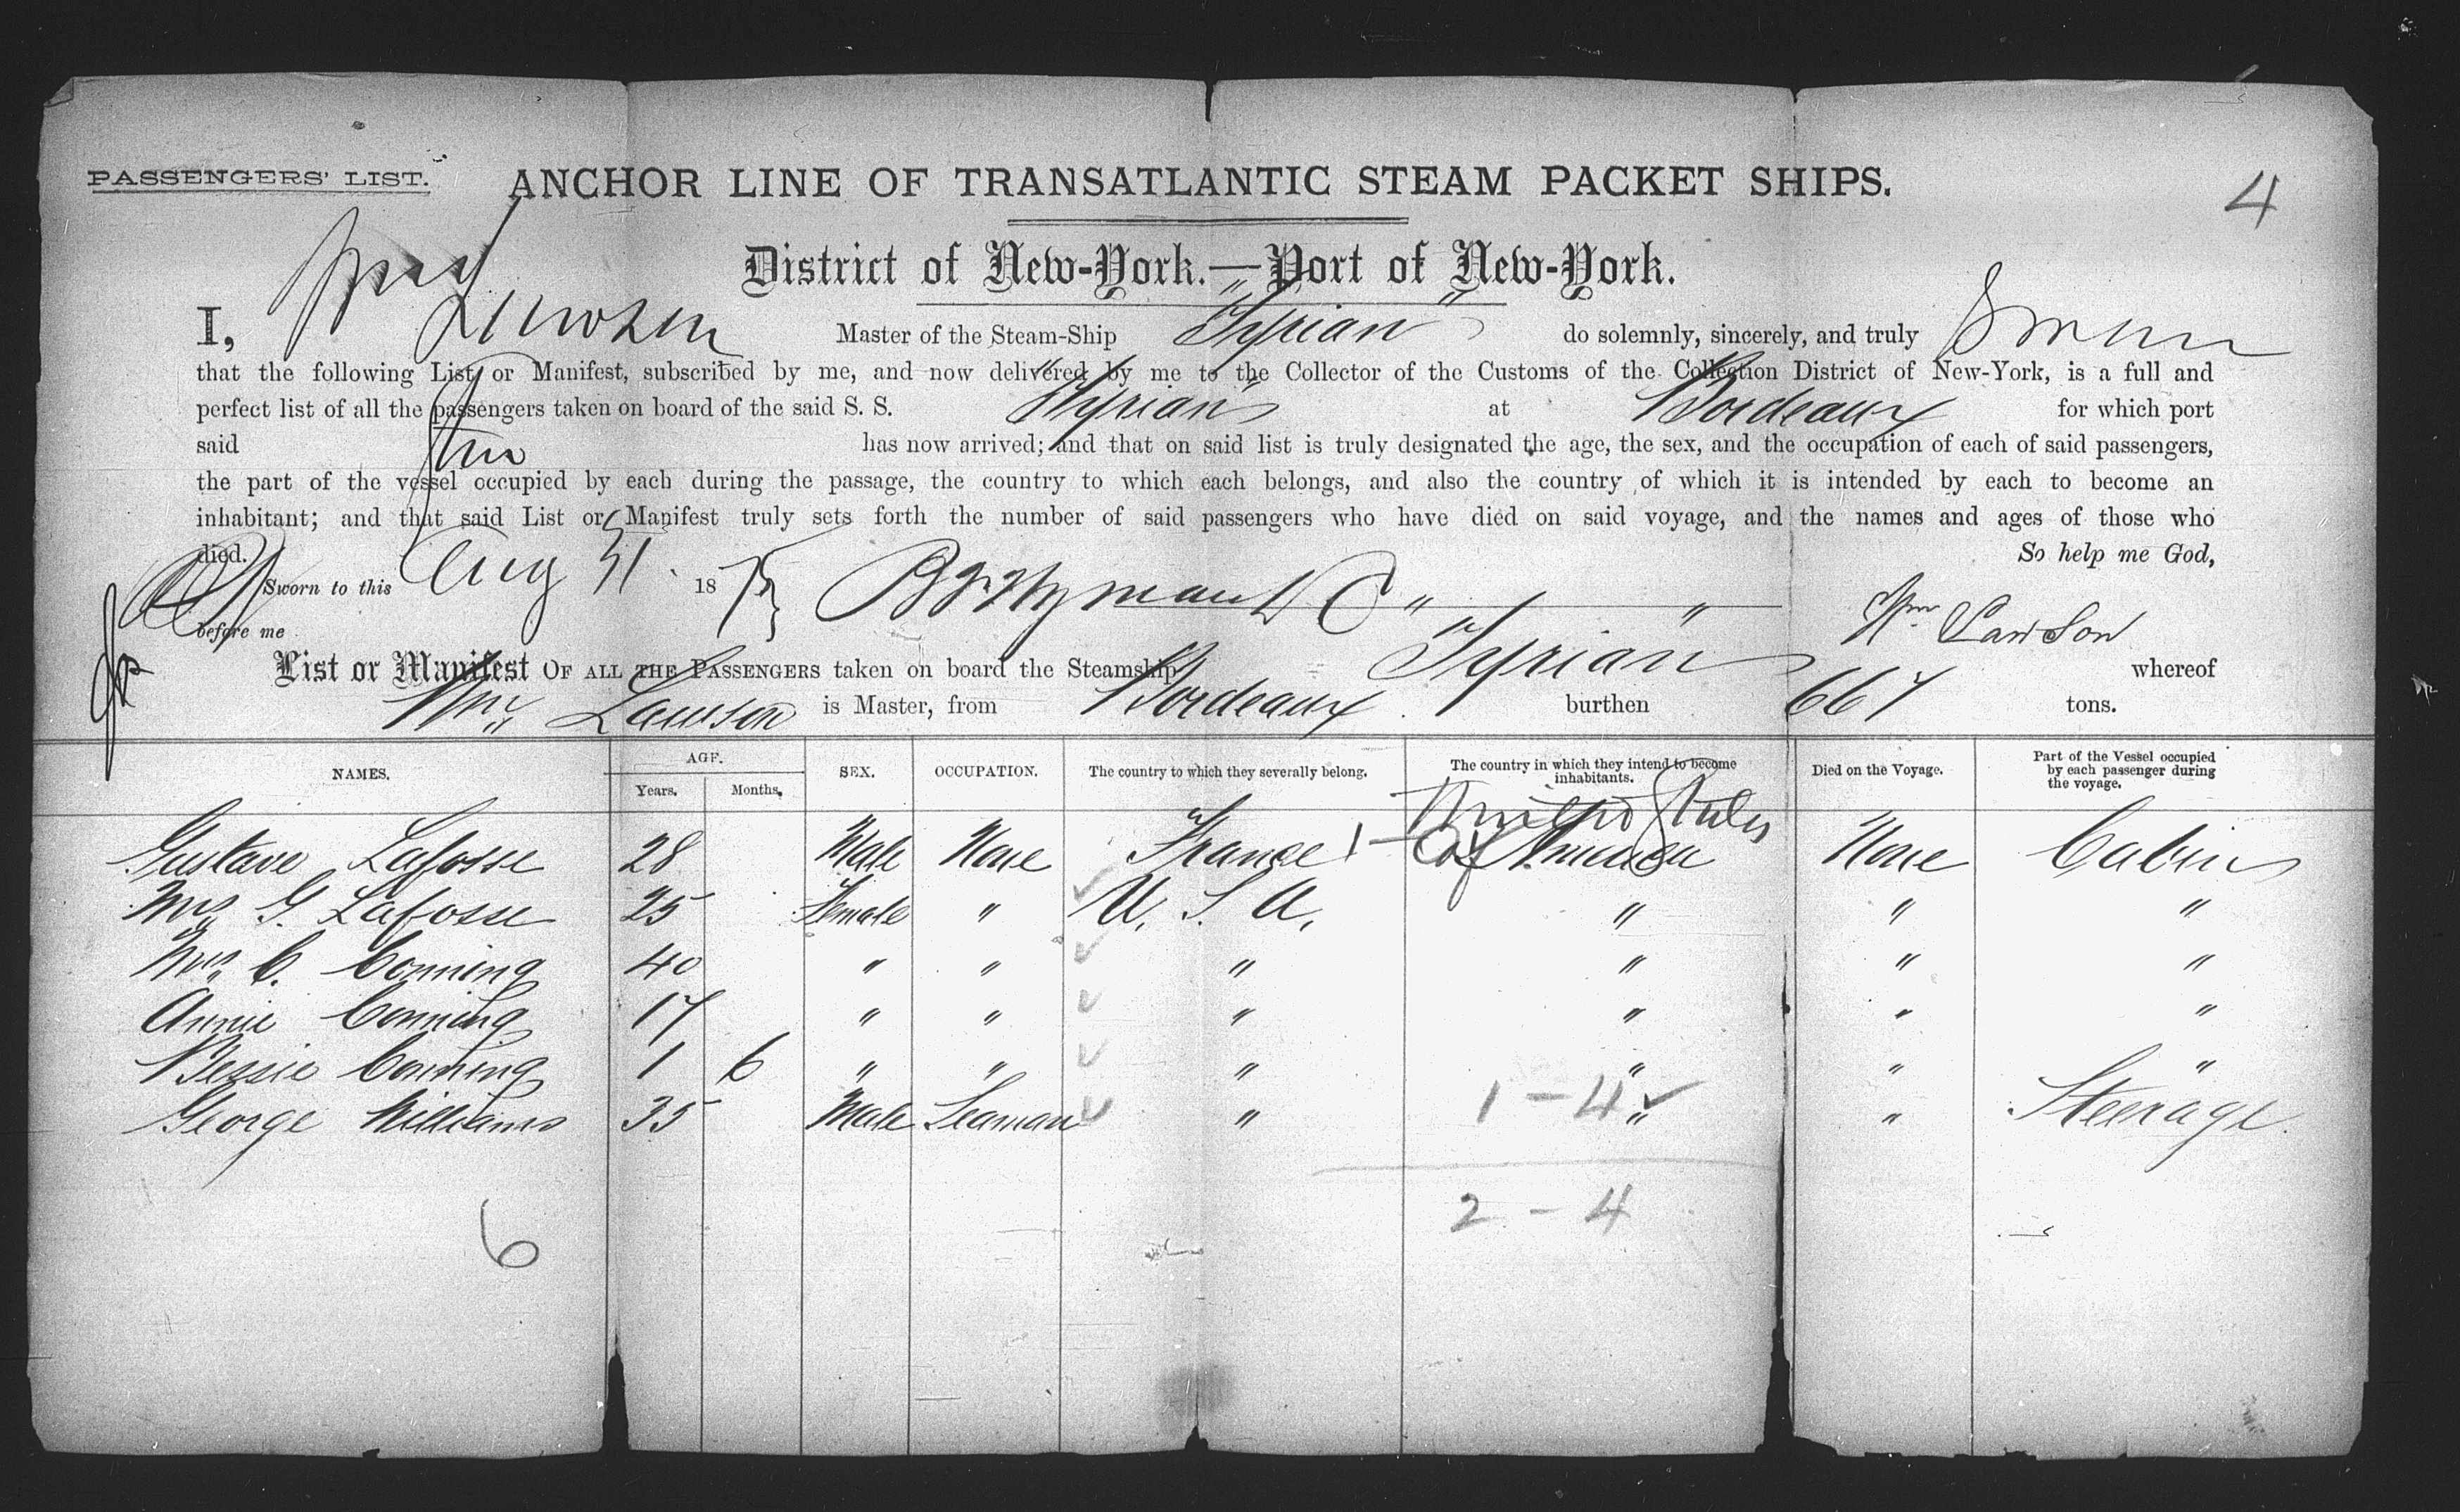 PASSENGERS' LIST. ANCHOR LINE OF TRANSATLANTIC STEAM PACKET SHIPS. 4
District of New-York.—Port of New-York.
I, Lawson Master of the Steam-Ship "Tyrian" do solemnly, sincerely, and truly Swear
that the following List or Manifest, subscribed by me, and now delivered by me to the Collector of the Customs of the Collection District of New-York, is a full and
perfect list of all the passengers taken on board of the said S. S. "Tyrian" at Bordeaux for which port
said has now arrived; and that on said list is truly designated the age, the sex, and the occupation of each of said passengers,
the part of the vessel occupied by each during the passage, the country to which each belongs, and also the country of which it is intended by each to become an
inhabitant; and that said List or Manifest truly sets forth the number of said passengers who have died on said voyage, and the names and ages of those who
died. So help me God,
Sworn to this Aug 31. 1875 Wm Lawson
before me
List or Manifest OF ALL THE PASSENGERS taken on board the Steamship "Tyrian" whereof
Wm. Lawson is Master, from Bordeaux burthen 667 tons.
NAMES. AGE. Years. Months. SEX. OCCUPATION. The country to which they severally belong. The country in which they intend to become inhabitants. Died on the Voyage. Part of the Vessel occupied by each passenger during the voyage.
United States
Gustave Lafosse 28 Male None France 1 - of America None Cabin
Mrs G. Lafosse 25 Female " U. S. A. " " "
Mrs. C. Conning 40 " " " " " "
Annie Conning 17 " " " " " "
Bessie Conning 1 6 " " " " " "
George Williams 35 Male Seaman " " " Steerage
1 - 4
2 - 4
6